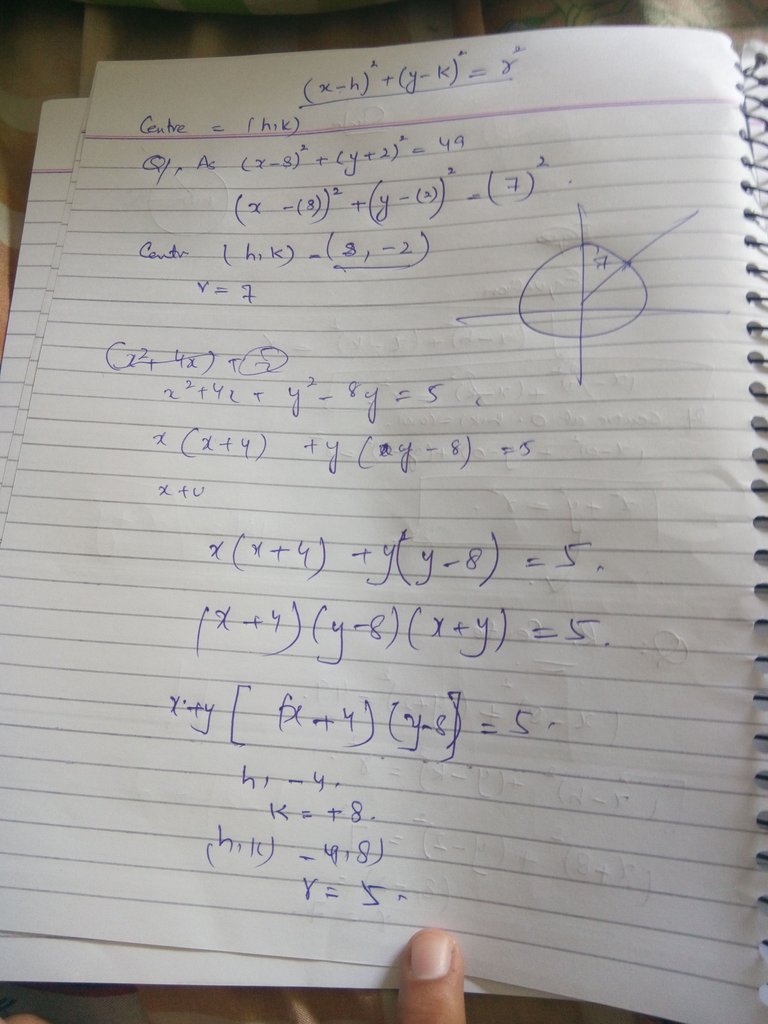 (x-h)² + (y-k)² = r²
Centre = (h,k)
Q1. As (x-8)² + (y+2)² = 49
(x-(8))² + (y-(2))² = (7)².
Centr (h,k) = (8, -2)
r = 7
7
(x²+ 4x) +
x²+4x + y² - 8y = 5.
x(x+4) + y(y-8) = 5
x+
x(x+4) + y(y-8) = 5.
(x+4)(y-8)(x+y) = 5.
x+y[(x+4)(y-8)] = 5.
h, -4.
K = +8.
(h,k) -4,8)
r = 5.